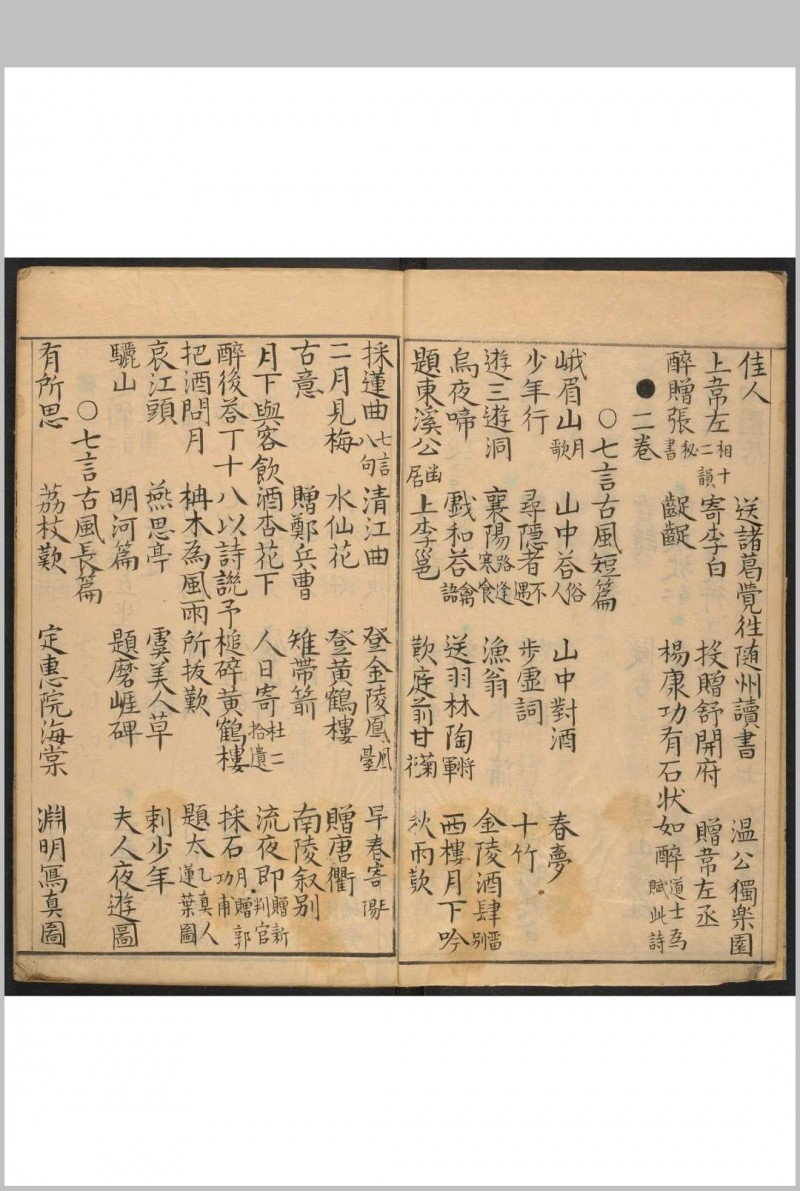 佳人 送諸葛覺徃随州讀書 温公獨樂園
上韋左相二十韻 寄李白 投贈舒開府 贈韋左丞
醉贈張秘書 齪齪 楊康功有石状如醉道士為賦此詩
●二卷
○七言古風短篇
峨眉山月歌 山中荅俗人 山中對酒 春夢
少年行 尋隱者不遇 歩虚詞 十竹
遊三遊洞 襄陽路逢寒食 漁翁 金陵酒肆留别
烏夜啼 戲和荅禽語 送羽林陶將軍 西樓月下吟
題東溪公幽居 上李邕 歎庭前甘菊花 秋雨歎
採蓮曲七言八句 清江曲 登金陵鳳凰臺 早春寄
二月見梅 水仙花 登黄鶴樓 贈唐衢
古意 贈鄭兵曹 雉帶箭 南陵叙别
月下與客飲酒杏花下 人日寄杜二拾遺 流夜郎贈新判官
醉後荅丁十八以詩譏予槌碎黄鶴樓 採石月贈郭功甫
把酒問月 柟木為風雨所拔歎 題太乙真人蓮葉圖
哀江頭 燕思亭 虞美人草 刺少年
驪山 明河篇 題磨崖碑 夫人夜遊圖
○七言古風長篇
有所思 荔枝歎 定惠院海棠 淵明寫真圖